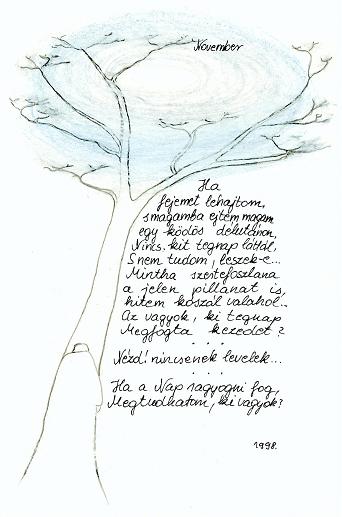 November
Ha
fejemet lehajtom,
s magamba ejtem magam
egy ködös délutánon,
Nincs, kit tegnap láttál,
S nem tudom, leszek-e...
Mintha szertefoszlana
a jelen pillanat is,
hitem kószál valahol...
Az vagyok, ki tegnap
Megfogta kezedet?
. . .
Nézd! nincsenek levelek...
. . .
Ha a Nap ragyogni fog,
Megtudhatom, ki vagyok?
1998.